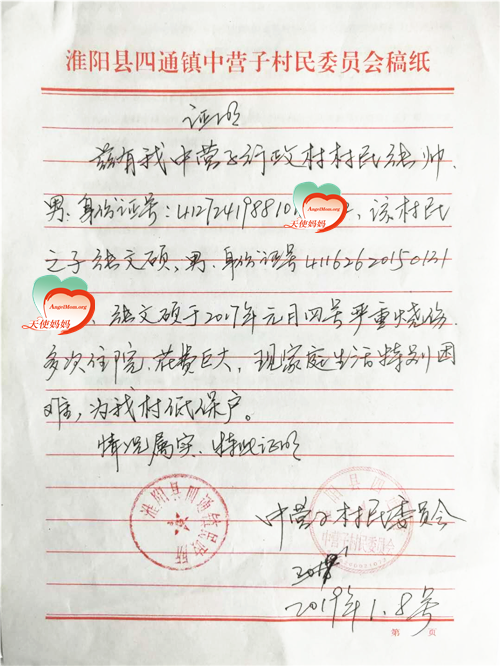 淮阳县四通镇中营子村民委员会稿纸
证明
兹有我中营子行政村村民张帅,
男,身份证号:412724198810 AngelMom.org 天使妈妈 ,该村民
之子张文硕,男,身份证号41162620150131
AngelMom.org 天使妈妈 ,张文硕于2017年元月四号严重烧伤,
多次住院,花费巨大,现家庭生活特别困
难,为我村低保户。
情况属实,特此证明
淮阳县四通镇民政所
中营子村民委员会
2019年1.8号
第 页